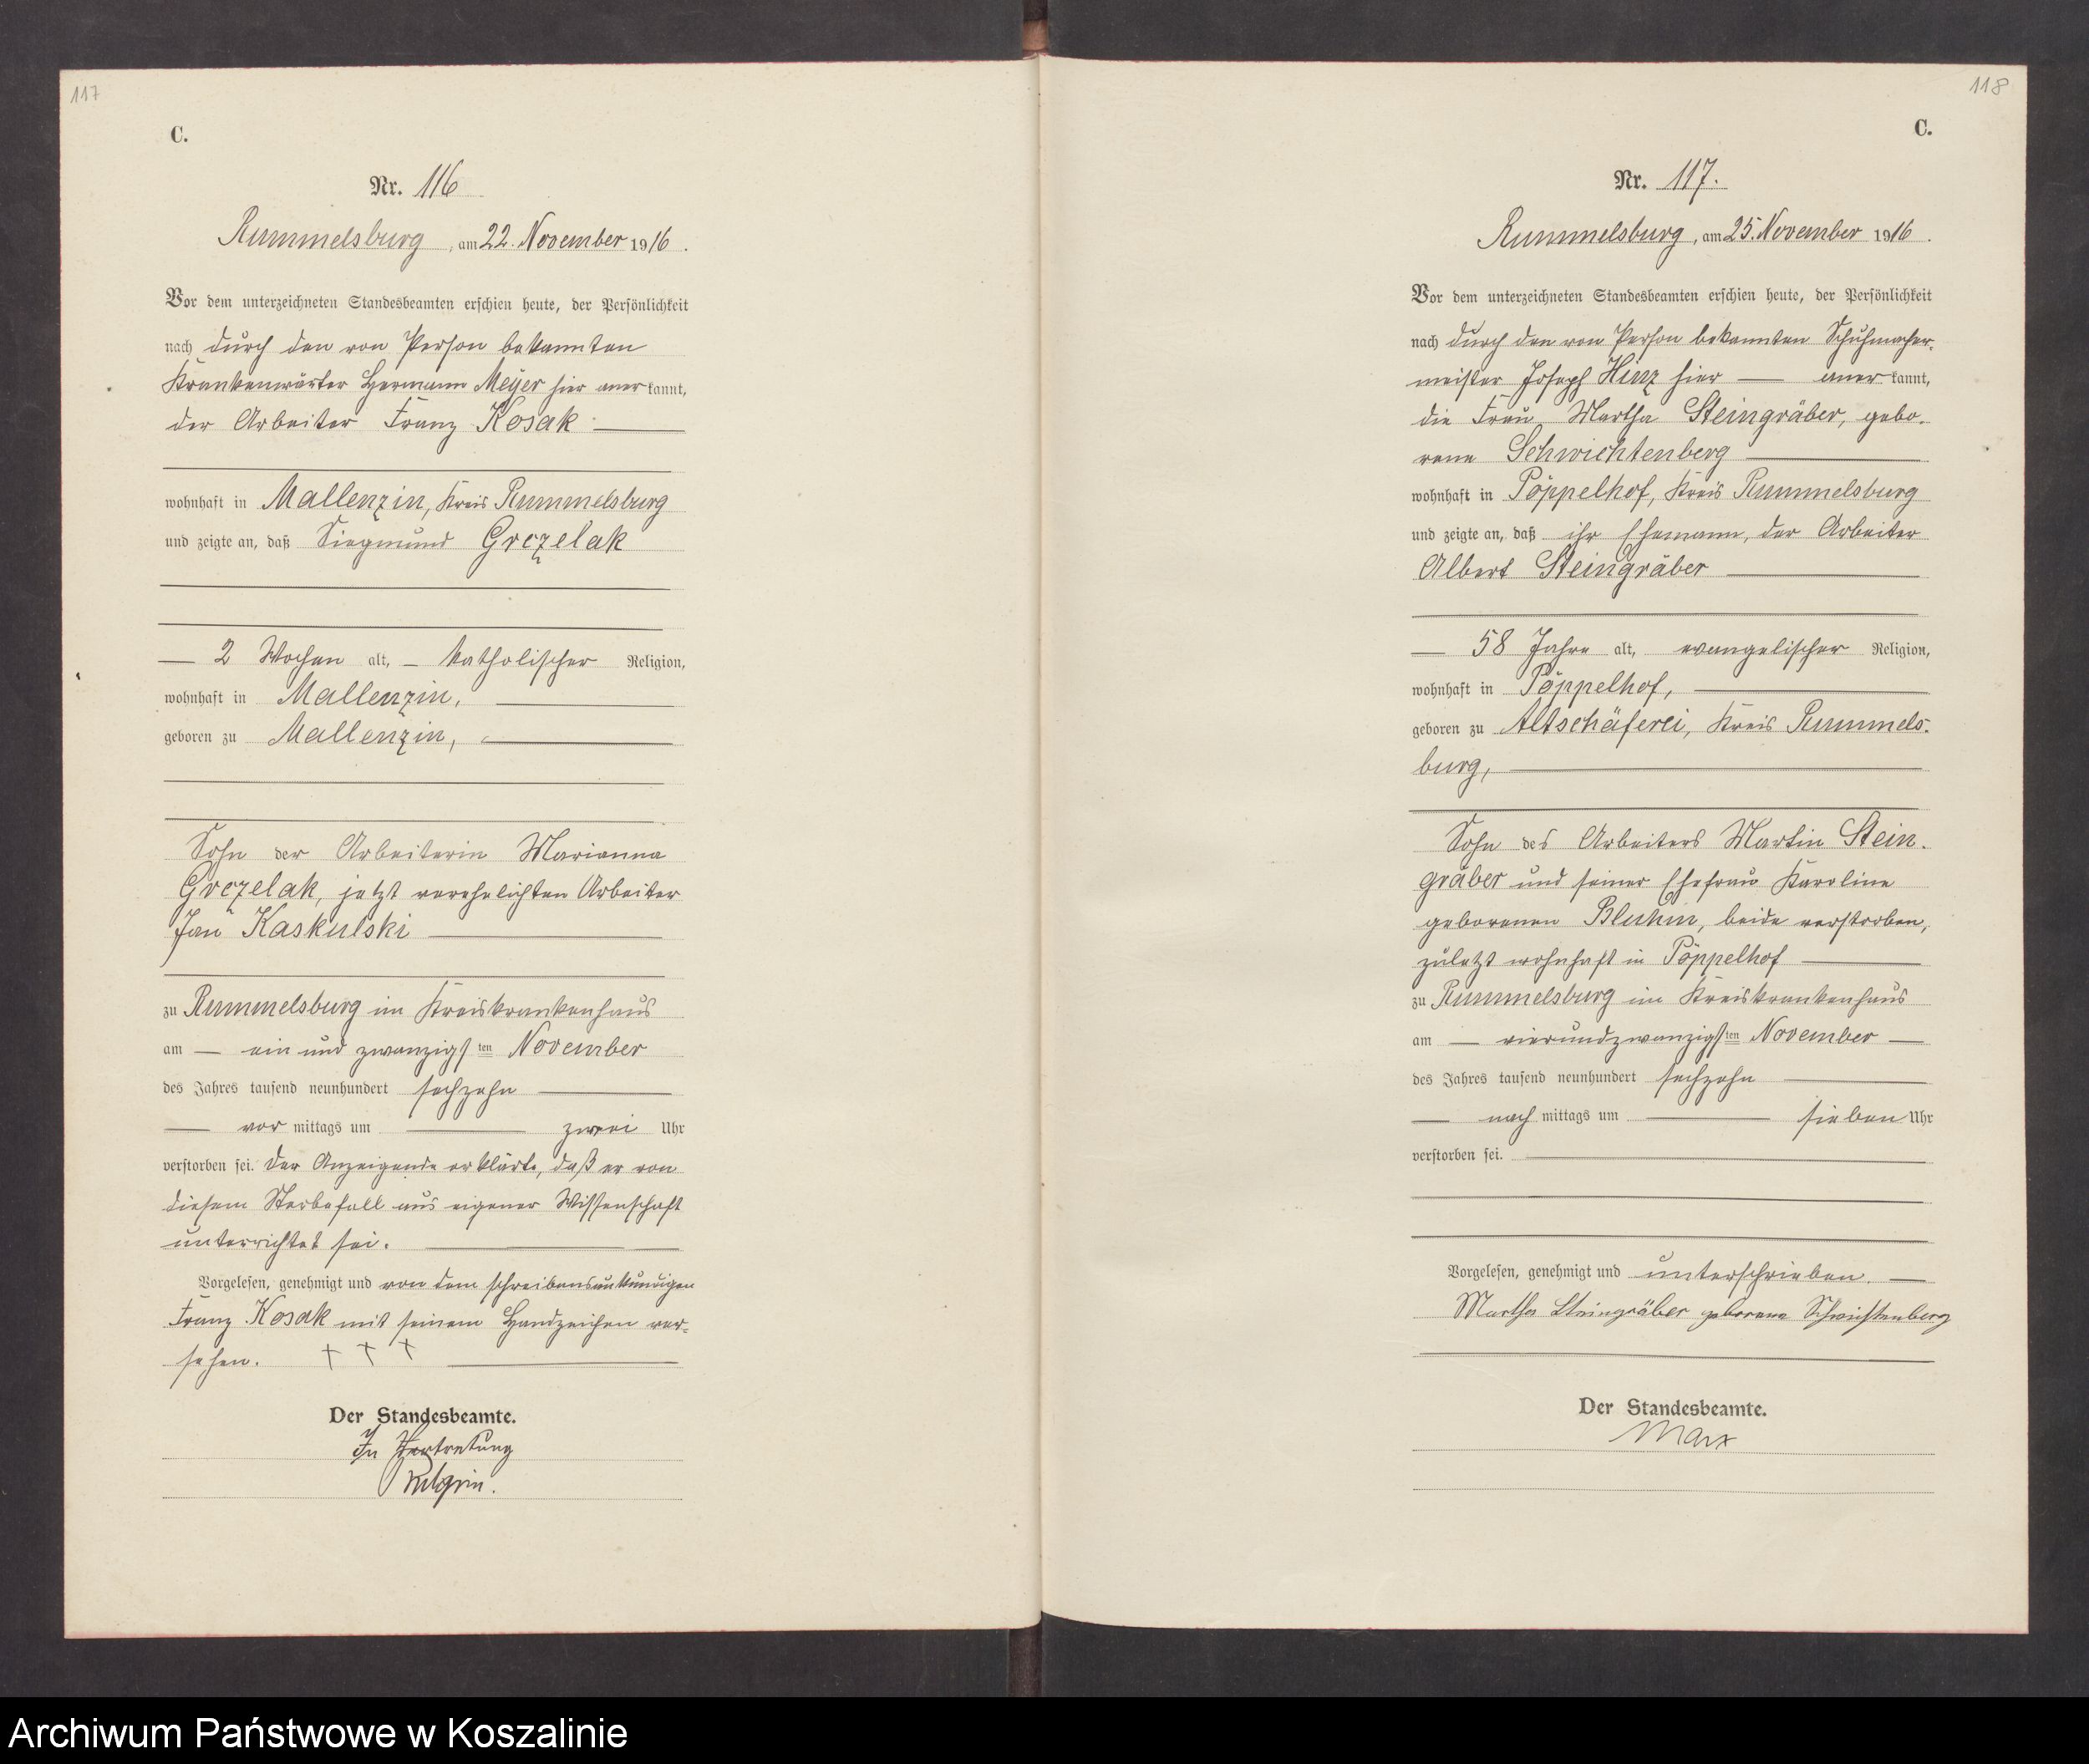 117
C.
Nr. 116
Rummelsburg, am 22. November 1916.
Vor dem unterzeichneten Standesbeamten erschien heute, der Persönlichkeit
nach durch den von Person bekannten
Krankenwärter Hermann Meyer hier anerkannt,
der Arbeiter Franz Kosak
wohnhaft in Mallenzin, Kreis Rummelsburg
und zeigte an, daß Siegmund Grczelak
2 Wochen alt, katholischer Religion,
wohnhaft in Mallenzin,
geboren zu Mallenzin,
Sohn der Arbeiterin Marianna
Grczelak, jetzt verehelichten Arbeiter
Jan Kaskulski
zu Rummelsburg im Kreiskrankenhaus
am ein und zwanzigsten November
des Jahres tausend neunhundert sechzehn
vor mittags um zwei Uhr
verstorben sei. Der Anzeigende erklärte, daß er von
diesem Sterbefall aus eigener Wissenschaft
unterrichtet sei.
Vorgelesen, genehmigt und von dem schreibensunkundigen
Franz Kosak mit seinem Handzeichen ver-
sehen. + + +
Der Standesbeamte.
In Vertretung
Pilgrim.
118
C.
Nr. 117.
Rummelsburg, am 25. November 1916.
Vor dem unterzeichneten Standesbeamten erschien heute, der Persönlichkeit
nach durch den von Person bekannten Schuhmacher-
meister Joseph Hinz hier anerkannt,
die Frau Martha Steingräber, gebo-
rene Schwichtenberg
wohnhaft in Pöppelhof, Kreis Rummelsburg
und zeigte an, daß ihr Ehemann, der Arbeiter
Albert Steingräber
58 Jahre alt, evangelischer Religion,
wohnhaft in Pöppelhof,
geboren zu Altschäferei, Kreis Rummels-
burg,
Sohn des Arbeiters Martin Stein-
gräber und seiner Ehefrau Karoline
geborenen Bluhm, beide verstorben,
zuletzt wohnhaft in Pöppelhof
zu Rummelsburg im Kreiskrankenhaus
am vierundzwanzigsten November
des Jahres tausend neunhundert sechzehn
nach mittags um sieben Uhr
verstorben sei.
Vorgelesen, genehmigt und unterschrieben.
Martha Steingräber geborene Schwichtenberg
Der Standesbeamte.
Marx
Archiwum Państwowe w Koszalinie